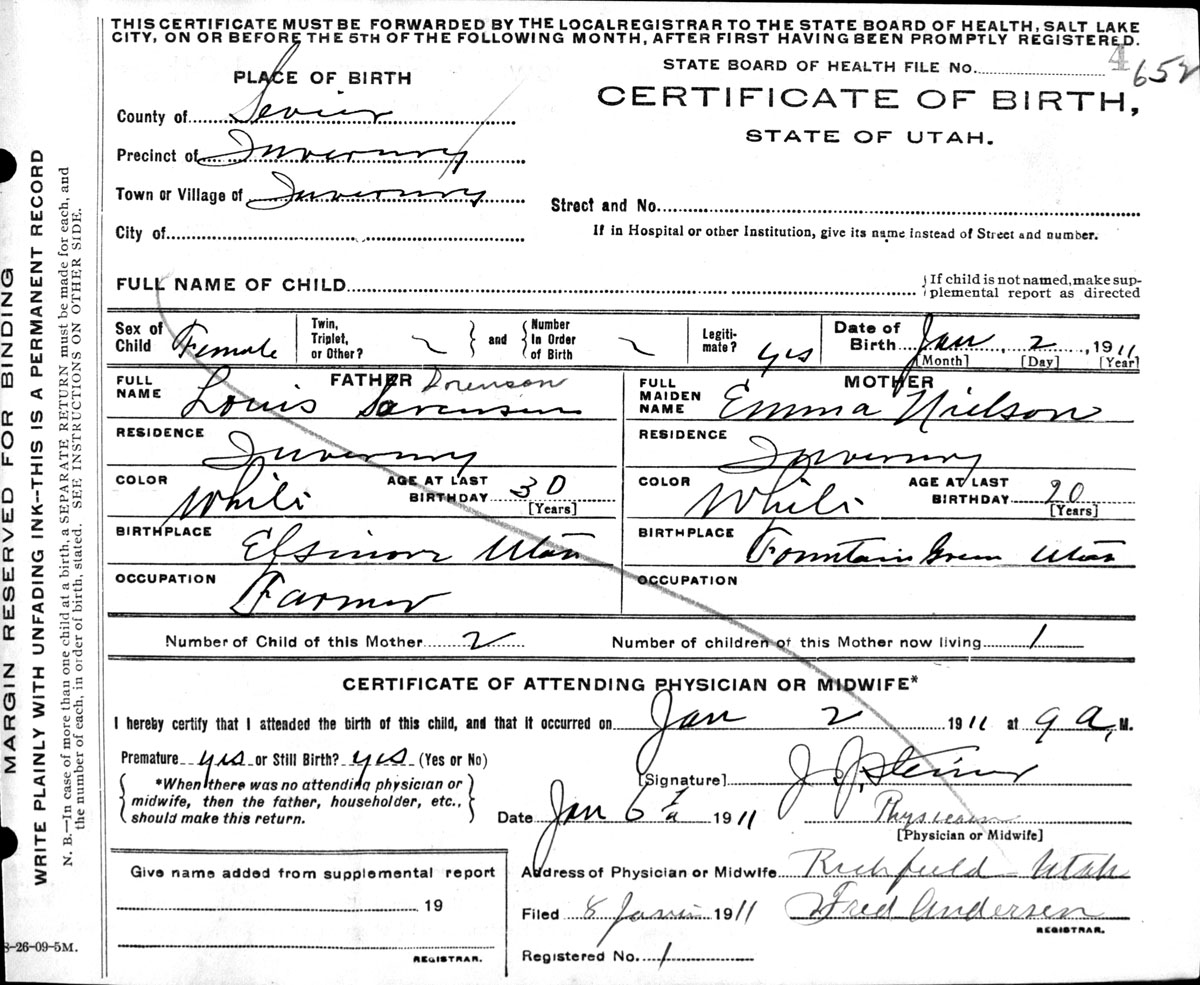 THIS CERTIFICATE MUST BE FORWARDED BY THE LOCAL REGISTRAR TO THE STATE BOARD OF HEALTH, SALT LAKE
CITY, ON OR BEFORE THE 5TH OF THE FOLLOWING MONTH, AFTER FIRST HAVING BEEN PROMPTLY REGISTERED.
STATE BOARD OF HEALTH FILE No. 4 652
PLACE OF BIRTH
CERTIFICATE OF BIRTH,
STATE OF UTAH.
County of Sevier
Precinct of Inverury
Town or Village of Inverury
Street and No.
City of
If in Hospital or other Institution, give its name instead of Street and number.
FULL NAME OF CHILD
{If child is not named, make sup-
plemental report as directed
Sex of Child Female
Twin, Triplet, or Other?
and
Number In Order of Birth
Legiti-mate? yes
Date of Birth Jan, 2, 1911
[Month] [Day] [Year]
FATHER
FULL NAME Louis Sorensen
Sorenson
RESIDENCE Inverury
COLOR White
AGE AT LAST BIRTHDAY 30
[Years]
BIRTHPLACE Elsinore Utah
OCCUPATION Farmer
MOTHER
FULL MAIDEN NAME Emma Nielson
RESIDENCE Inverury
COLOR White
AGE AT LAST BIRTHDAY 20
[Years]
BIRTHPLACE Fountain Green Utah
OCCUPATION
Number of Child of this Mother 2
Number of children of this Mother now living 1
CERTIFICATE OF ATTENDING PHYSICIAN OR MIDWIFE*
I hereby certify that I attended the birth of this child, and that it occurred on Jan 2 1911 at 9 a, M.
Premature yes or Still Birth? yes (Yes or No)
*When there was no attending physician or
midwife, then the father, householder, etc.,
should make this return.
[Signature] J. J. Steiner
Date Jan 6 1911
Physician
[Physician or Midwife]
Address of Physician or Midwife Richfield Utah
Filed 8 1911 Fred Andersen
REGISTRAR.
Registered No. 1
Give name added from supplemental report
19
REGISTRAR.
8-26-09-5M.
MARGIN RESERVED FOR BINDING
WRITE PLAINLY WITH UNFADING INK--THIS IS A PERMANENT RECORD
N. B.—In case of more than one child at a birth, a SEPARATE RETURN must be made for each, and
the number of each, in order of birth, stated. SEE INSTRUCTION ON OTHER SIDE.